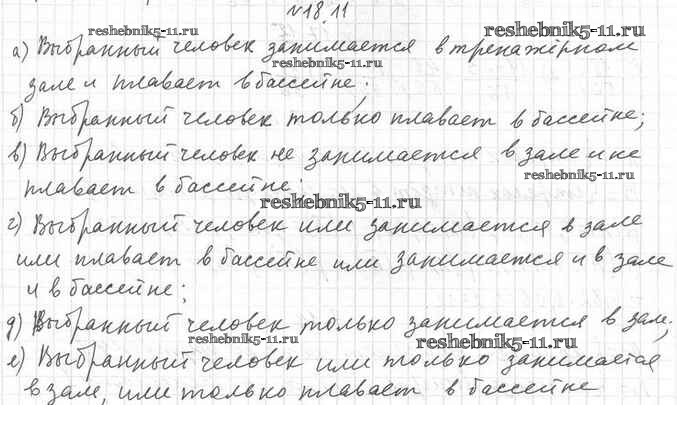 №18.11
а) Выбранный человек занимается в тренажёрном
зале и плавает в бассейне;
б) Выбранный человек только плавает в бассейне;
в) Выбранный человек не занимается в зале и не
плавает в бассейне;
г) Выбранный человек или занимается в зале
или плавает в бассейне или занимается и в зале
и в бассейне;
д) Выбранный человек только занимается в зале;
е) Выбранный человек или только занимается
в зал, или только плавает в бассейне
reshebnik5-11.ru
reshebnik5-11.ru
reshebnik5-11.ru
reshebnik5-11.ru
reshebnik5-11.ru
reshebnik5-11.ru
reshebnik5-11.ru